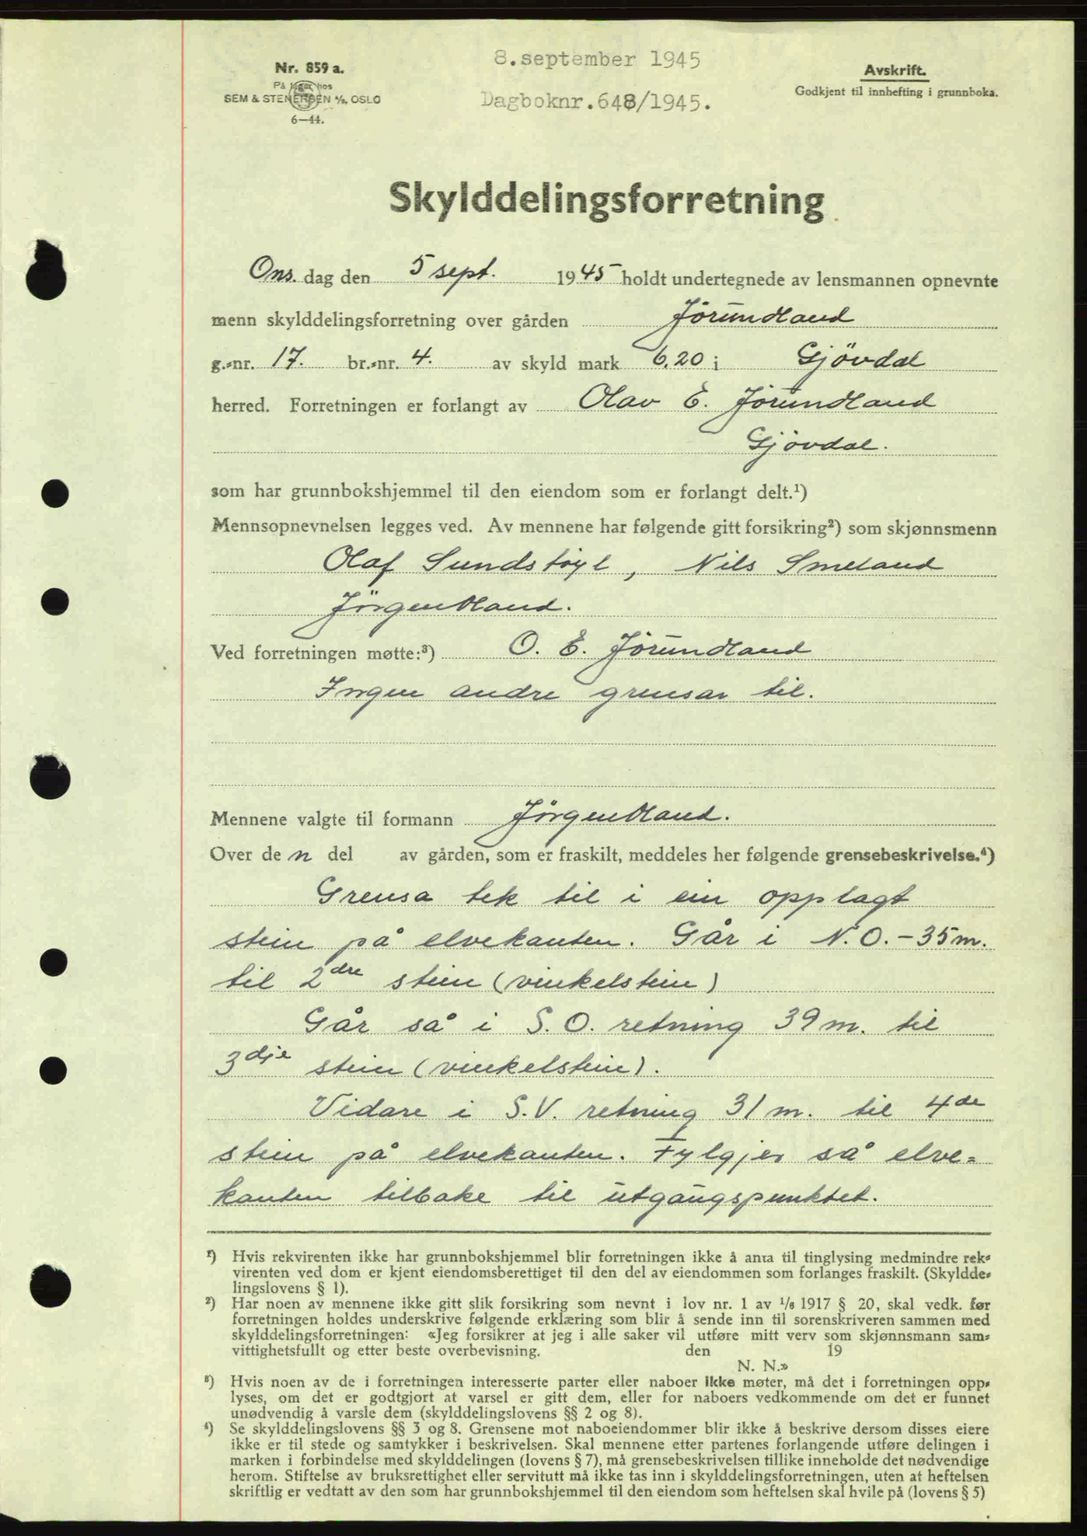 8.september 1945
Dagboknr.648/1945.
Nr. 859 a.
På lager hos
SEM & STENERSEN A/S, OSLO
6—44.
Avskrift.
Godkjent til innhefting i grunnboka.
Skylddelingsforretning
Ons. dag den 5 sept. 1945 holdt undertegnede av lensmannen opnevnte
menn skylddelingsforretning over gården Jørundland
g.-nr. 17. br.-nr. 4. av skyld mark 6.20 i Gjövdal
herred. Forretningen er forlangt av Olav E. Jørundland
Gjövdal.
som har grunnbokshjemmel til den eiendom som er forlangt delt.¹)
Mennsopnevnelsen legges ved. Av mennene har følgende gitt forsikring²) som skjønnsmenn
Olaf Sundstøyl, Nils Smeland
Jørgen Mand.
Ved forretningen møtte:³) O. E. Jørundland
Ingen andre grensar til.
Mennene valgte til formann Jørgen Mand.
Over den del av gården, som er fraskilt, meddeles her følgende grensebeskrivelse.⁴)
Grensa tek til i ein opplagt
stein på elvekanten. Går i N.O.-35m.
til 2dre stein (vinkelstein)
Går så i S.O. retning 39 m. til
3dje stein (vinkelstein).
Vidare i S.V. retning 31 m. til 4de
stein på elvekanten. Fylgjer så elve=
kanten tilbake til utgangspunktet.
¹) Hvis rekvirenten ikke har grunnbokshjemmel blir forretningen ikke å anta til tinglysing medmindre rek-
virenten ved dom er kjent eiendomsberettiget til den del av eiendommen som forlanges fraskilt. (Skyldde-
lingslovens § 1).
²) Har noen av mennene ikke gitt slik forsikring som nevnt i lov nr. 1 av 1/6 1917 § 20, skal vedk. før
forretningen holdes underskrive følgende erklæring som blir å sende inn til sorenskriveren sammen med
skylddelingsforretningen: «Jeg forsikrer at jeg i alle saker vil utføre mitt verv som skjønnsmann sam-
vittighetsfullt og etter beste overbevisning. den 19
N. N.»
³) Hvis noen av de i forretningen interesserte parter eller naboer ikke møter, må det i forretningen opp-
lyses, om det er godtgjort at varsel er gitt dem, eller for naboers vedkommende om det er funnet
unødvendig å varsle dem (skylddelingslovens §§ 2 og 8).
⁴) Se skylddelingslovens §§ 3 og 8. Grensene mot naboeiendommer blir ikke å beskrive dersom disses eiere
ikke er til stede og samtykker i beskrivelsen. Skal mennene etter partenes forlangende utføre delingen i
marken i forbindelse med skylddelingen (lovens § 7), må grensebeskrivelsen tillike inneholde det nødvendige
herom. Stiftelse av bruksrettighet eller servitutt må ikke tas inn i skylddelingsforretningen, uten at heftelsen
skriftlig er vedtatt av den som har grunnbokshjemmel til den eiendom som heftelsen skal hvile på (lovens § 5)